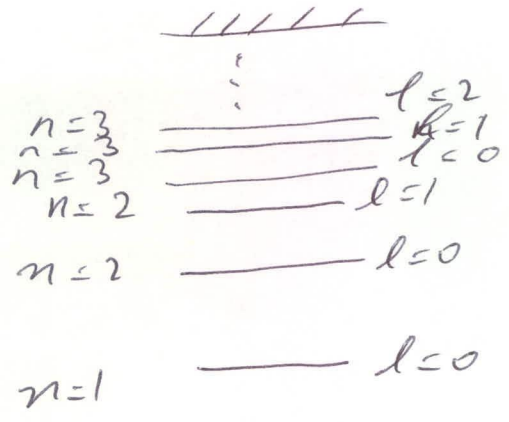 l = 2
n = 3 l = 1
n = 3 l = 0
n = 3
n = 2 l = 1
n = 2 l = 0
n = 1 l = 0